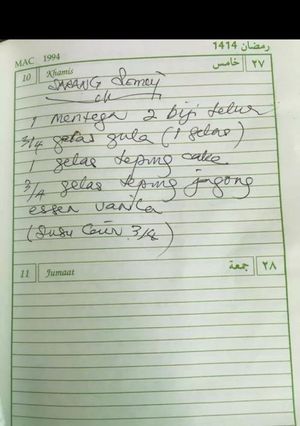 رمضان 1414
MAC 1994
10 Khamis
٢٧ خامس
SARANG Semut
ok
1 mentega 2 biji telur
3/4 gelas gula (1 gelas)
1 gelas tepung cake
3/4 gelas tepung jagong
essen vanila
(Susu Cair 3/4)
11 Jumaat
٢٨ جمعة